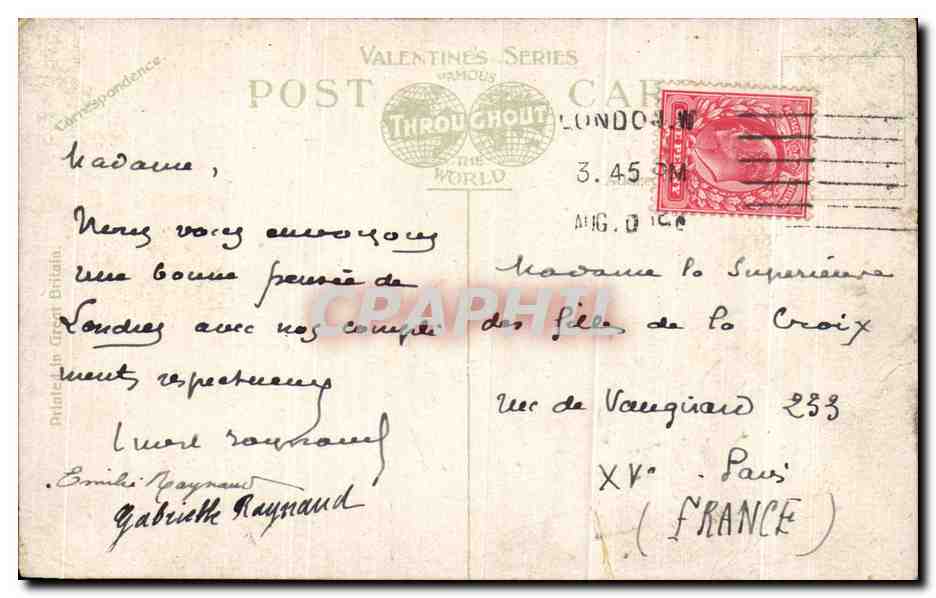 VALENTINE'S SERIES
FAMOUS
POST CAR
THROUGHOUT
THE
WORLD
Correspondence
Printed in Great Britain.
LONDON.W
3.45 PM
AUG.
Madame,
Nous vous envoyons
une bonne pensée de
Londres avec nos compli
ments respectueux
Raynaud
Emilie Raynaud
Gabrielle Raynaud
Madame la Supérieure
des filles de la Croix
rue de Vaugirard 233
XVe. Paris
(FRANCE)
CRAPHIL